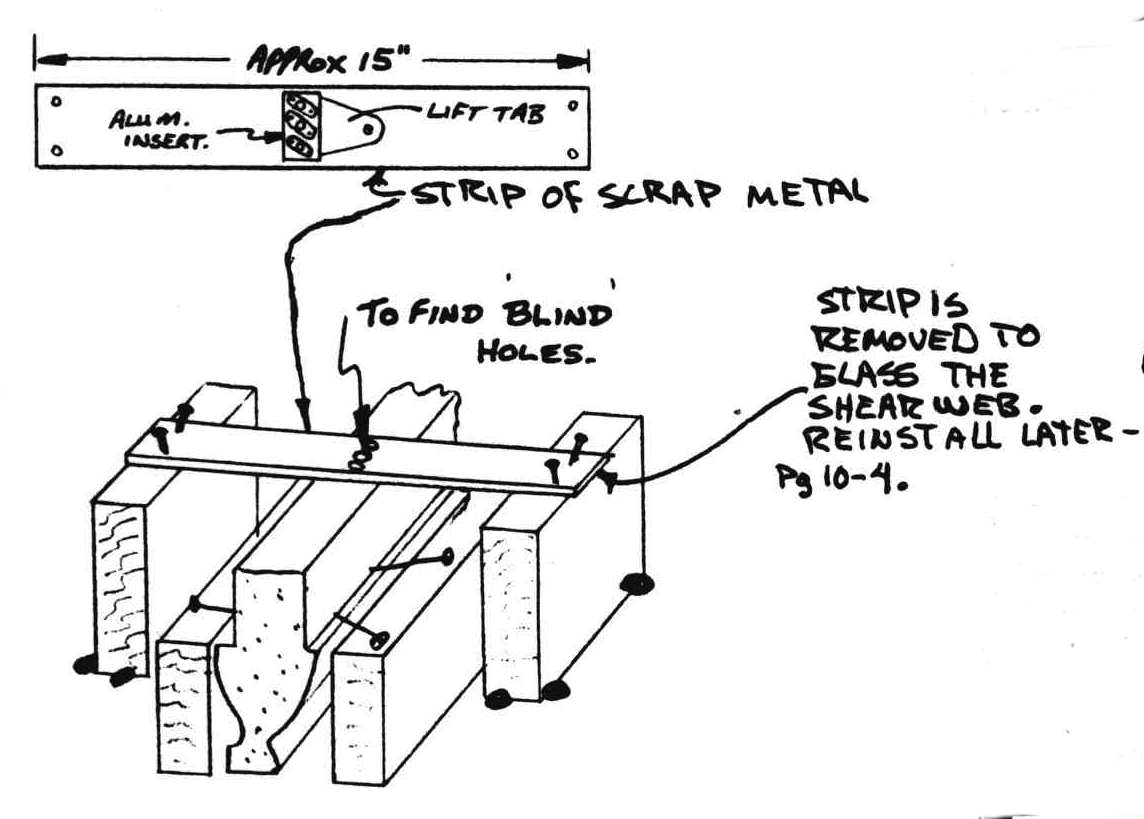 APPROX 15"
ALUM.
INSERT.
LIFT TAB
STRIP OF SCRAP METAL
TO FIND 'BLIND'
HOLES.
STRIP IS
REMOVED TO
GLASS THE
SHEAR WEB.
REINSTALL LATER -
Pg 10-4.